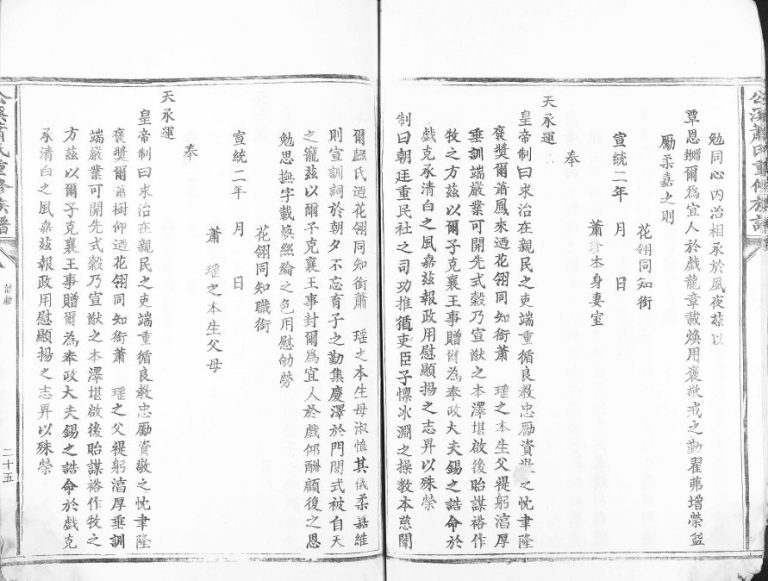 勉同心內治相承於夙夜茲以
覃恩貤爾為宜人於戲龍章載煥用褒敬戒之勤翟茀增榮益
勵柔嘉之則
花翎同知銜
宣統二年　月　日
蕭珍本身妻室
奉
天承運
皇帝制曰求治在親民之吏端重循良教忠勵資之忱聿隆
褒獎爾蕭鳳來迺花翎同知銜蕭　瑤之本生父褆躬淳厚
垂訓端嚴業可開先式穀乃宣猷之本澤堪啟後貽謀裕作
牧之方茲以爾子克襄王事贈爾為奉政大夫錫之誥命於
戲克承清白之風嘉茲報政用慰顯揚之志昇以殊榮
制曰朝廷重民社之司功推循吏臣子懷冰淵之操教本慈闈
爾顧氏迺花翎同知銜蕭　瑤之本生母淑慎其儀柔嘉維
則宣訓詞於朝夕不忘育子之勤集慶澤於門閭式被自天
之寵茲以爾子克襄王事封爾為宜人於戲酬顧復之恩
勉思撫字載煥絲綸之色用慰劬勞
花翎同知職銜
宣統二年　月　日
蕭　瑤之本生父母
奉
天承運
皇帝制曰求治在親民之吏端重循良教忠勵資敬之忱聿隆
褒獎爾蕭樹仰迺花翎同知銜蕭　瑤之父褆躬淳厚垂訓
端嚴業可開先式穀乃宣猷之本澤堪啟後貽謀裕作牧之
方茲以爾子克襄王事贈爾為奉政大夫錫之誥命於戲克
承清白之風嘉茲報政用慰顯揚之志昇以殊榮
蕭氏重修族譜
二十五